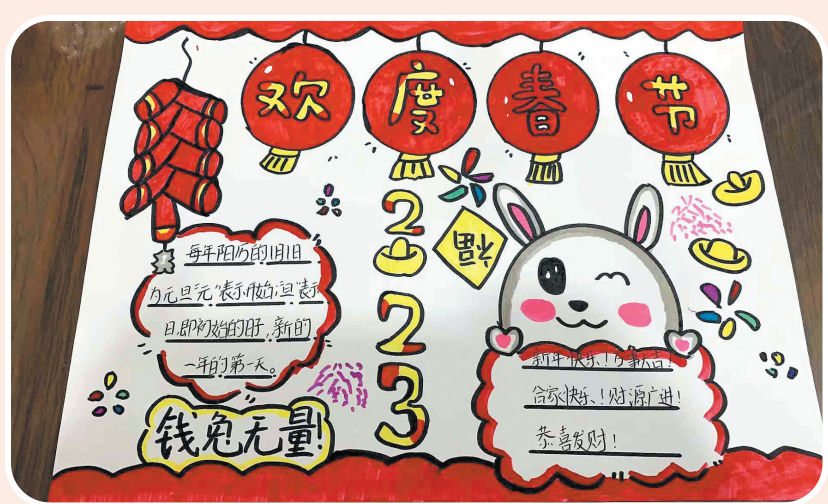 欢度春节
每年阳历的1月1日
为元旦"元"表示开始,"旦"表示
日,即初始的日子,新的
一年的第一天。
钱兔无量!
2
2
3
福
新年快乐!万事大吉!
合家快乐!财源广进!
恭喜发财!